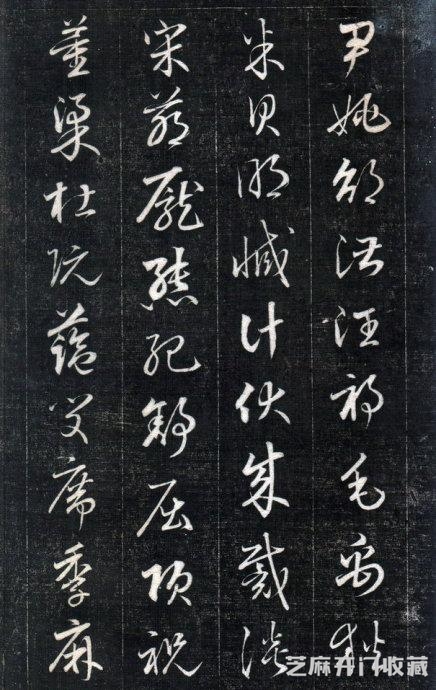 尹姚邵湛汪祁毛禹狄
米贝明臧计伏成戴谈
宋茅庞熊纪舒屈项祝
董梁杜阮蓝闵席季麻
芝麻开门收藏